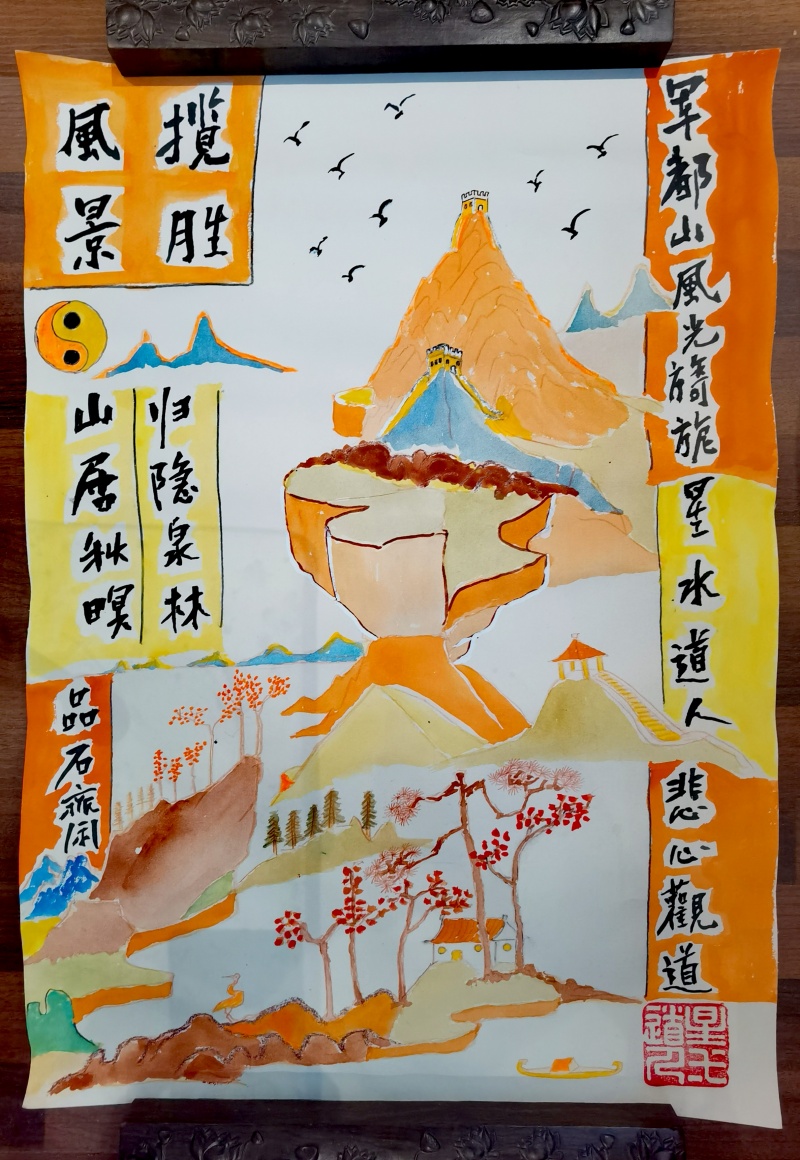 军都山風光旖旎
星水道人
悲心觀道
攬胜
風景
归隐泉林
山居秋暝
品石斋闲
星水道人